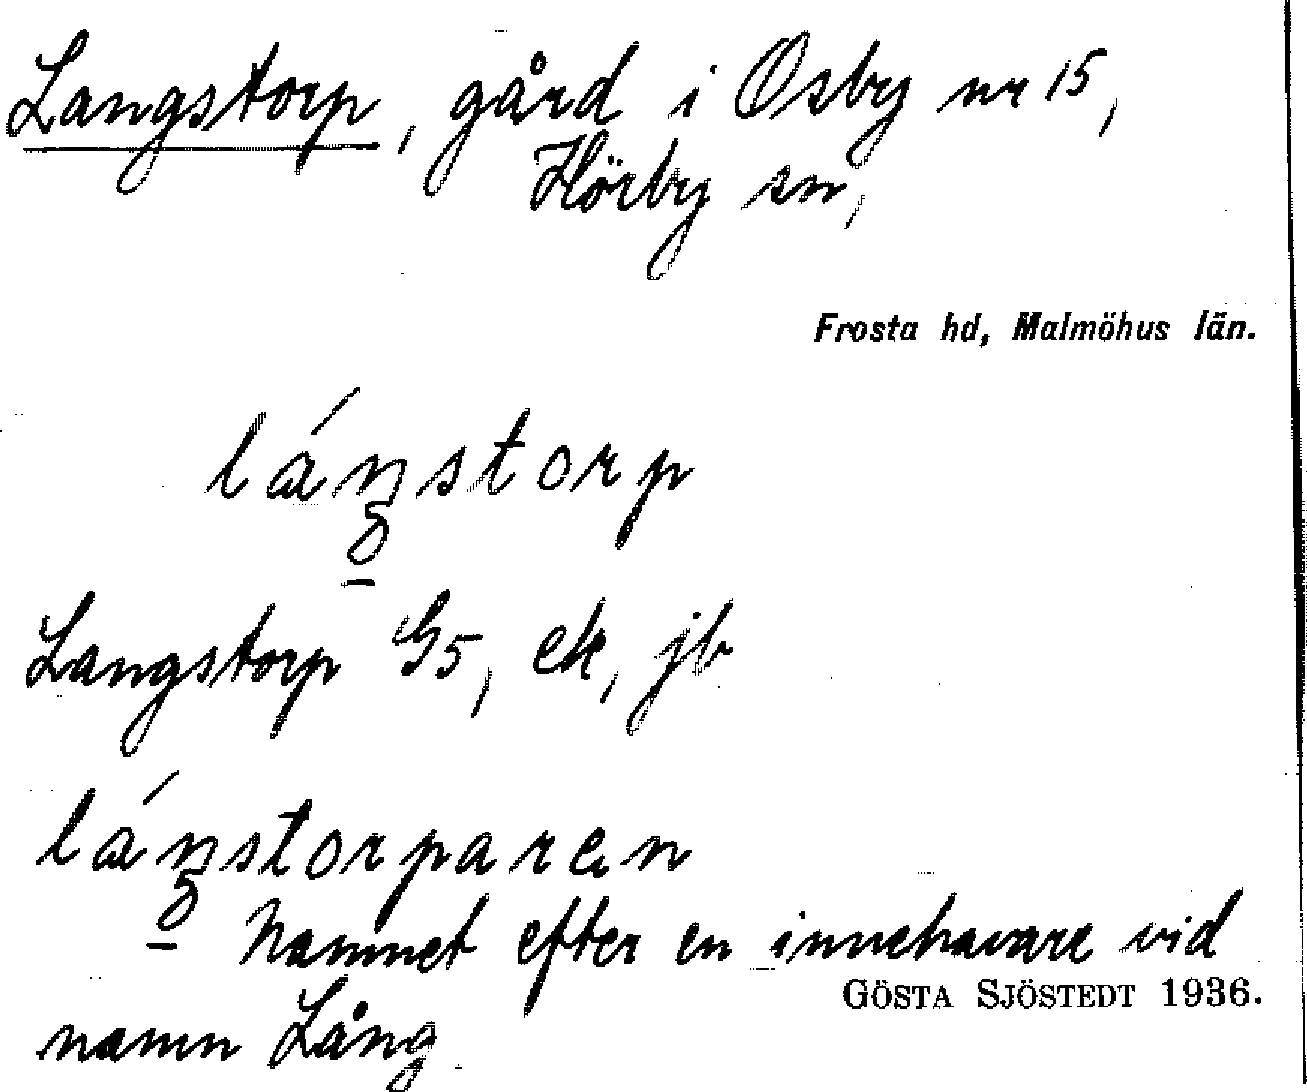 Langstorp, gård i Osby nr 15,
Hörby sn,
Frosta hd, Malmöhus län.
láŋstorp
Langstorp G5, ek, jb
láŋstorparen
Namnet efter en innehavare vid
GÖSTA SJÖSTEDT 1936.
namn Lång